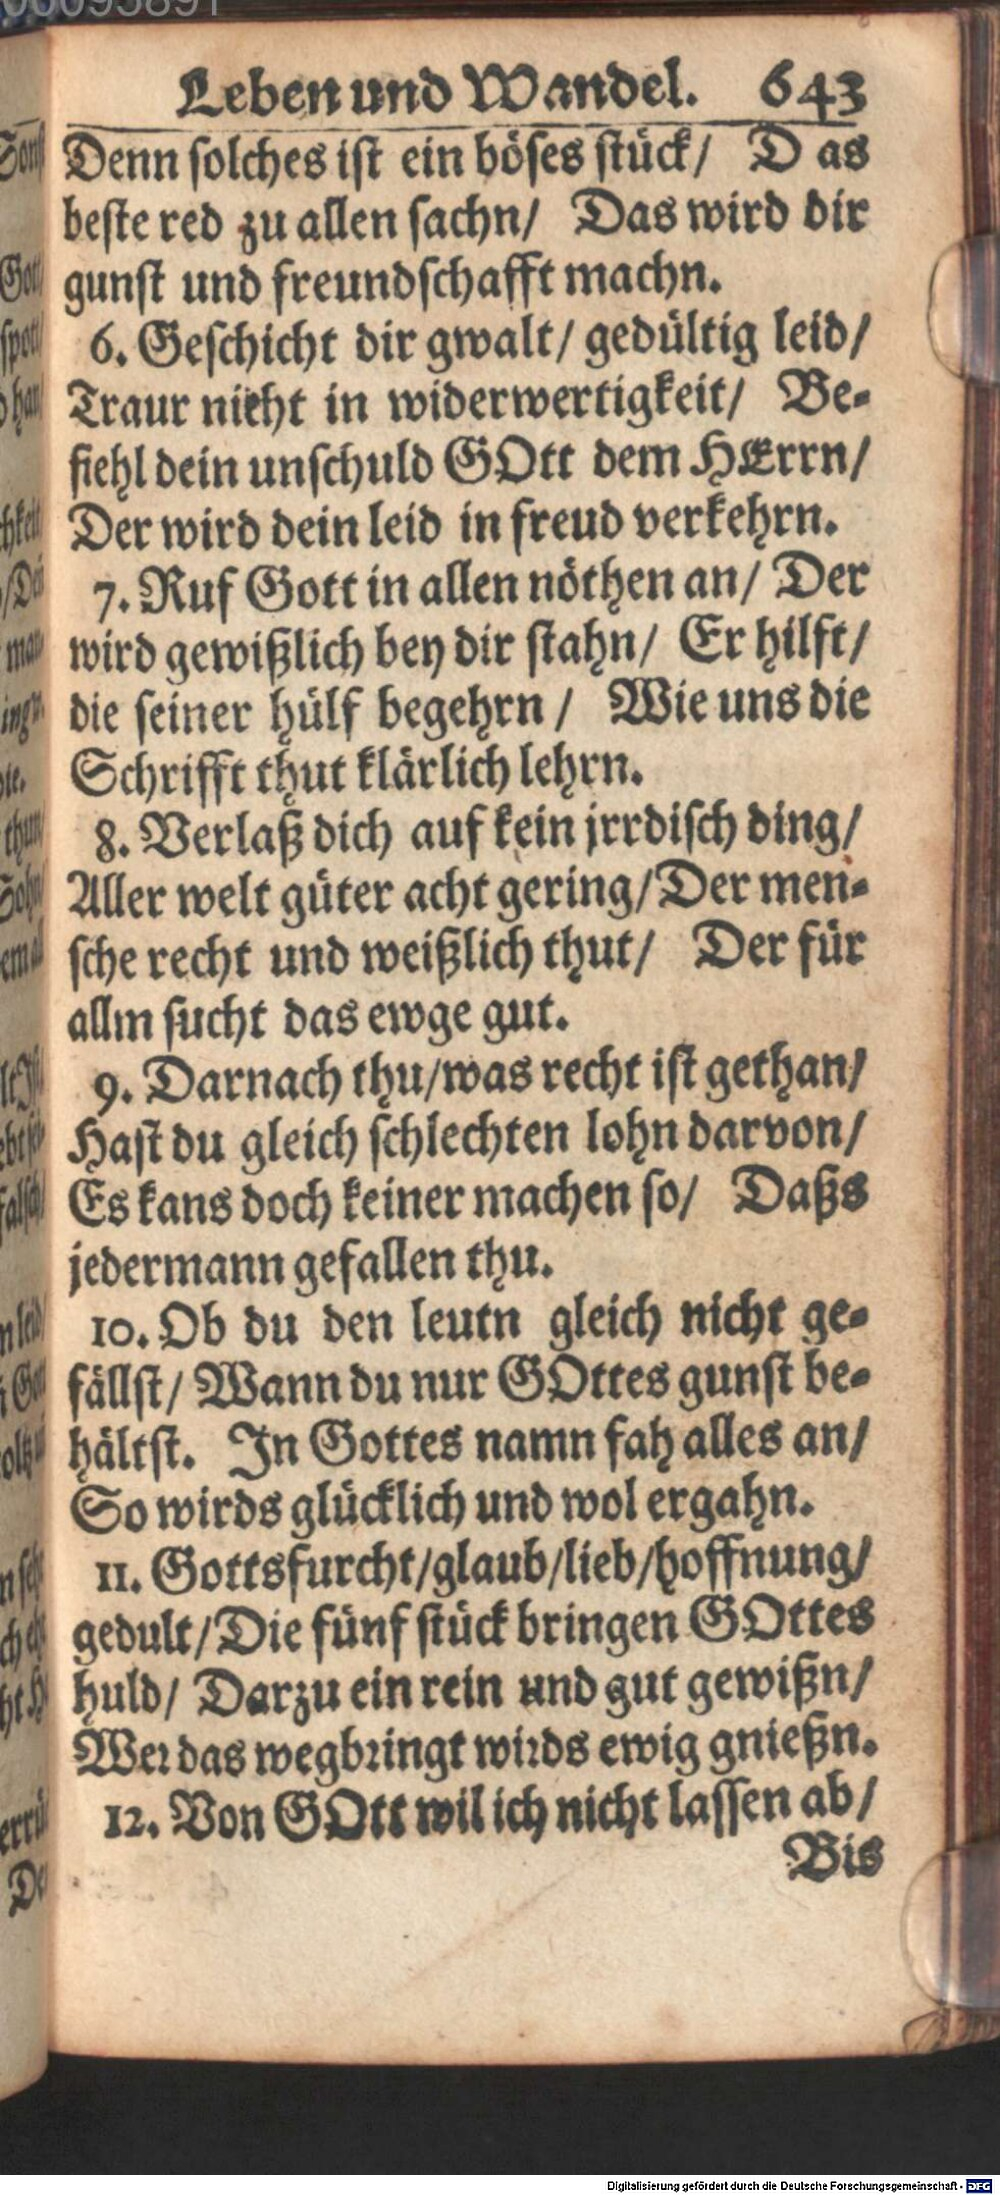 Leben und Wandel. 643
Denn solches ist ein böses stück/ Das
beste red zu allen sachn/ Das wird dir
gunst und freundschafft machn.
6. Geschicht dir gwalt/ gedültig leid/
Traur nicht in widerwertigkeit/ Be-
fiehl dein unschuld GOtt dem HErrn/
Der wird dein leid in freud verkehrn.
7. Ruf Gott in allen nöthen an/ Der
wird gewißlich bey dir stahn/ Er hilft/
die seiner hülf begehrn/ Wie uns die
Schrifft thut klärlich lehrn.
8. Verlaß dich auf kein jrrdisch ding/
Aller welt güter acht gering/ Der men-
sche recht und weißlich thut/ Der für
allm sucht das ewge gut.
9. Darnach thu/ was recht ist gethan/
Hast du gleich schlechten lohn darvon/
Es kans doch keiner machen so/ Daßs
jedermann gefallen thu.
10. Ob du den leutn gleich nicht ge-
fällst/ Wann du nur GOttes gunst be-
hältst. In Gottes namn fah alles an/
So wirds glücklich und wol ergahn.
11. Gottsfurcht/ glaub/ lieb/ hoffnung/
gedult/ Die fünf stück bringen GOttes
huld/ Darzu ein rein und gut gewißn/
Wer das wegbringt wirds ewig gnießn.
12. Von GOtt wil ich nicht lassen ab/
Bis
Digitalisierung gefördert durch die Deutsche Forschungsgemeinschaft - DFG